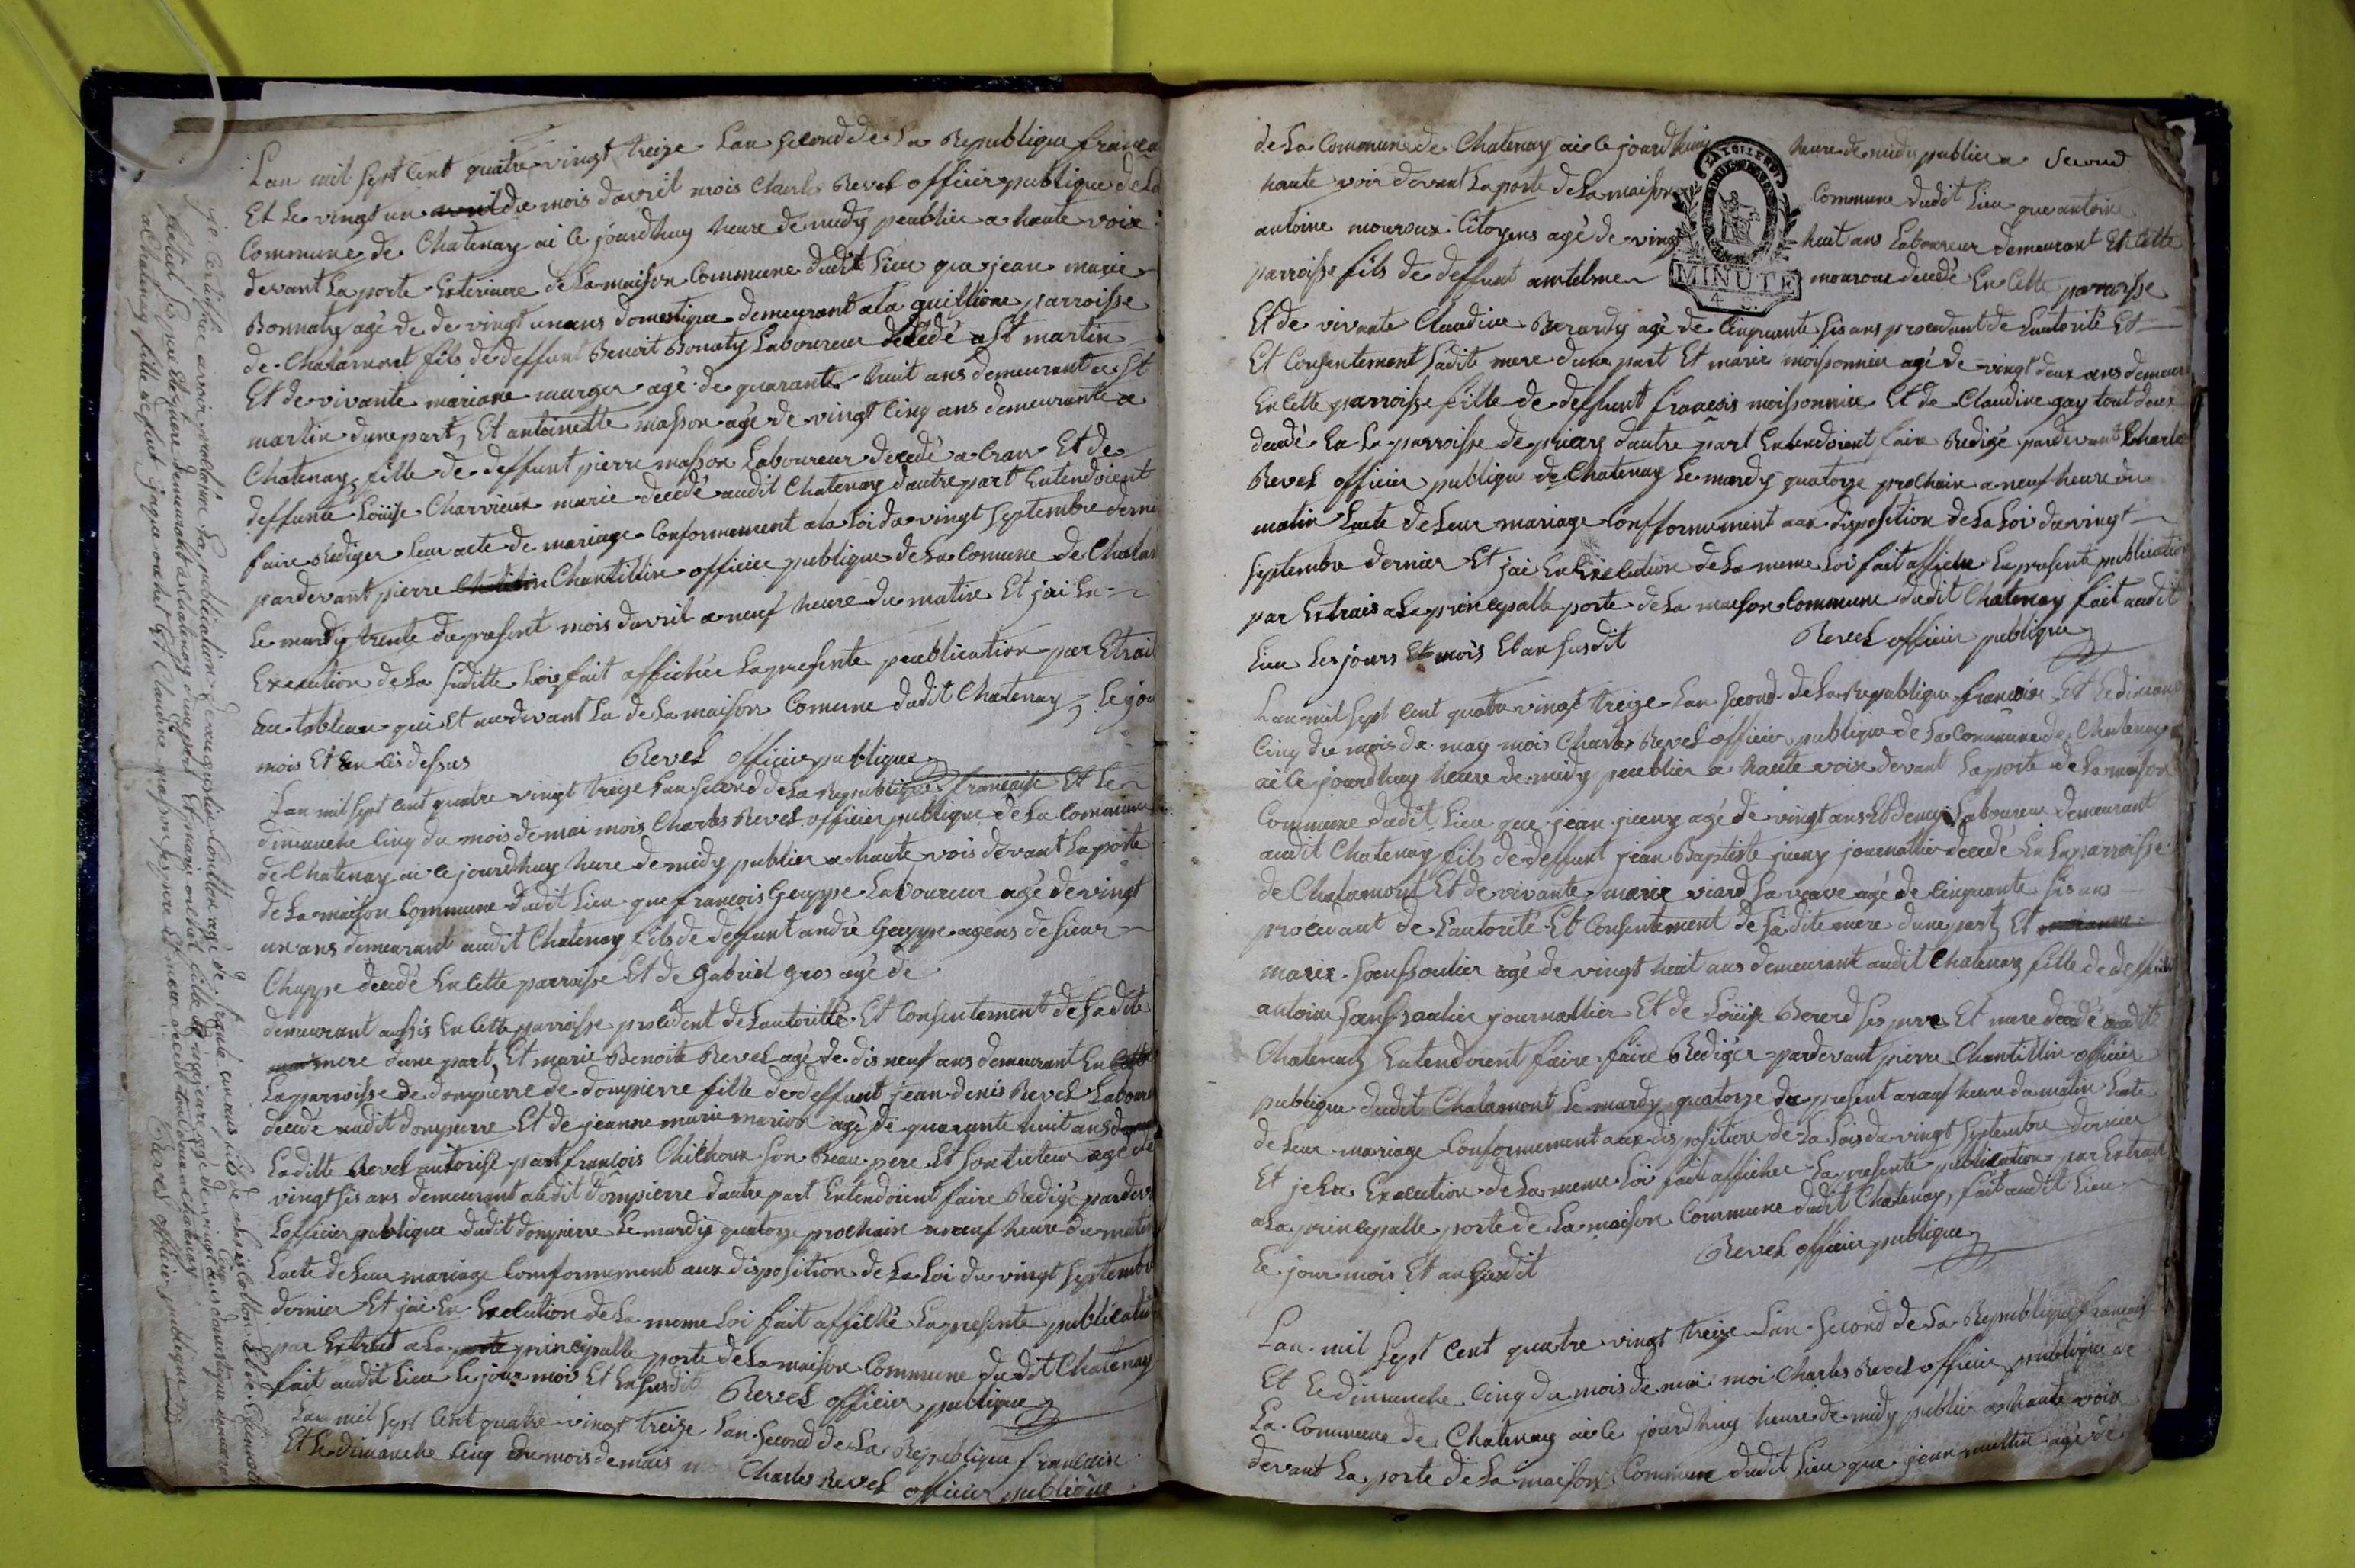 Lan mil sept Cent quatre vingt treize Lan second de La Republique francai
Et Le vingt un du mois davril mois Charles Revel officier publique de La
Commune de Chatenay ai Ce jourdhuy heure de midy peublier a haute voix
devant La porte Exterieure de La maison Commune dudit Lieu que jean marie
Bonnaty agé de de vingt un ans domestique demeurant a la guillione parroisse
de Chalamont fils de deffunt Benoit Bonaty Laboureur decedé a St martin
Et de vivante mariane murger agé de quarante huit ans demeurant a St
martin dune part, Et antoinette masson agé de vingt Cinq ans demeurante a
Chatenay fille de deffunt pierre masson Laboureur decedé a Cran Et de
deffunte Loüise Charvieux marie decedé audit Chatenay dautre part Entendoient
faire Rediger Leur acte de mariage Conformement a la Loi du vingt septembre dernie
pardevant pierre Chantillin officier publique de La Comune de Chalam
Le mardy trente du present mois davril a neuf heure du matin Et jai En
Execution de La suditte Lois fait affichée La presente peublication par Etrait
au tableau qui Et audevant La de La maison Comune dudit Chatenay Le jou
mois Et an Cis dessus Revel officier publique
Lan mil sept Cent quatre vingt treize Lan second de La Republique francaise Et Le
dimanche Cinq du mois de mai mois Charles Revel officier publique de La Commune
de Chatenay ai Ce jourdhuy heure de midy publier a haute vois devant La porte
de La maison Commune dudit Lieu que francois Geuppe Laboureur agé de vingt
un ans demeurant audit Chatenay fils de deffunt andré Geuppe agens de sieur
Chuppe decedé En Cette parroisse Et de gabriel gros agé de
demeurant aussis En Cette parroisse procedent de Lautorité Et Consentement de sadite
mere dune part, Et marie Benoite Revel agé de dis neuf ans demeurant En
La parroisse de dompierre de dompierre fille de deffunt jean denis Revel Laboureu
decede audit dompierre Et de jeanne marie marion agé de quarante huit ans
Laditte Revel autorisé part francois Chilhour son Beau pere Et son tuteur agé de
vingt sis ans demeurant audit dompierre dautre part Entendoient faire Redigé pardev
Lofficier publique dudit dompierre Le mardis quatorze prochain a neuf heure du matin
Lacte de Leur mariage Comformement aux disposition de La Loi du vingt septembre
dernier Et jai En Execution de La meme Loi fait affiché La presente publication
par Extrait a La principalle porte de La maison Commune dudit Chatenay
fait audit Lieu Le jour mois Et an susdit Revel officier publique
Lan mil sept Cent quatre vingt treize Lan second de La Republique francaise
Et Le dimanche Cinq du mois de mais Charles Revel officier publique
de La Commune de Chatenay ai Ce jourdhuy heure de midy publier a Second
haute voix devant La porte de La maison Commune dudit Lieu que antoine
antoine mouroux Citoyens agé de vingt huit ans Laboureur demeurant En Cette
parroisse fils de deffunt antelme mouroux decedé En Cette parroisse
LA LOI LE ROI
MINUTE
4 S.
Et de vivante Claudine Berardy agé de Cinquante sis ans procedant de Lautorité Et
Et Consentement sadite mere dune part Et marie moissonnier agé de vingt deux ans demeur
En Cette parroisse fille de deffunt francois moissonnier Et de Claudine gay tout deux
decedé En La parroisse de priay dautre part Entendoient faire Redigé pardevant Charles
Revel officier publique de Chatenay Le mardy quatorze prochain a neuf heure du
matin Lacte de Leur mariage Confformement aux disposition de La Loi du vingt
septembre dernier Et jai En Execution de La meme Loi fait affiche La presente publication
par Extrais a La principalle porte de La maison Commune dudit Chatenay fait audit
Lieu Les jours Et mois Et an susdit Revel officier publique
Lan mil sept Cent quatre vingt treize Lan second de La Republique francoise Et Le dimanc
Cinq du mois de may mois Charles Revel officier publique de La Commune de Chatenay
ai Ce jourdhuy heure de midy peublier a haute voix devant La porte de La maison
Commune dudit Lieu que jean jueny agé de vingt ans Et demy Laboureur demeurant
audit Chatenay fils de deffunt jean Baptiste jueny journallier decedé En La parroisse
de Chalamont Et de vivante marie viard sa veuve agé de Cinquante sis ans
procedant de Lautorité Et Consentement de sa dite mere dune part, Et
marie sansoulier agé de vingt huit ans demeurant audit Chatenay fille de deffunt
antoine sansoulier journallier Et de Loüise Bererd ses pere Et mere decedé audit
Chatenay Entendoient faire faire Rediger pardevant pierre Chantillin officier
publique dudit Chalamont Le mardy quatorze du present a neuf heure du matin Lacte
de Leur mariage Conformement aux dispositions de La Lois du vingt septembre dernier
Et je En Execution de La meme Loi fait affichee La presente publication par Extrait
a La principalle porte de La maison Commune dudit Chatenay, fait audit Lieu
Le jour mois Et an susdit Revel officier publique
Lan mil sept Cent quatre vingt treize Lan second de La Republique francaise
Et Le dimanche Cinq du mois de mai moi Charles Revel officier publique de
La Commune de Chatenay ai Ce jourdhuy heure de midy publier a haute voix
devant La porte de La maison Commune dudit Lieu que jean agé de
je certifie avoir La publication Cotton agé de trante un ans fils de Cotton Et de
ses pere Et mere demeurant a Chatenay dune part Et marie fille de agé de vingt Cinq ans domestique demeurant
a Chatenay fille de fut jaque Et Claudine masson ses pere Et mere decedé tout deux a Chatenay Revel officier publique